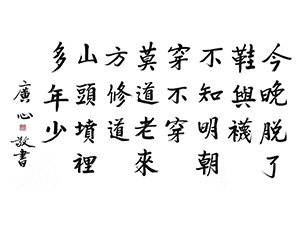 今晚脫了
鞋與襪
不知明朝
穿不穿
莫道老來
方修道
山頭墳裡
多年少
廣心敬書